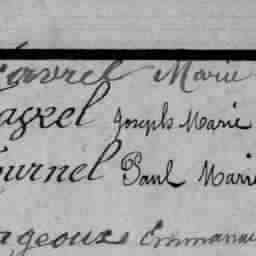 Favrel Marie
agrel Joseph Marie
ournel Paul Marie
ageoux Emmanue